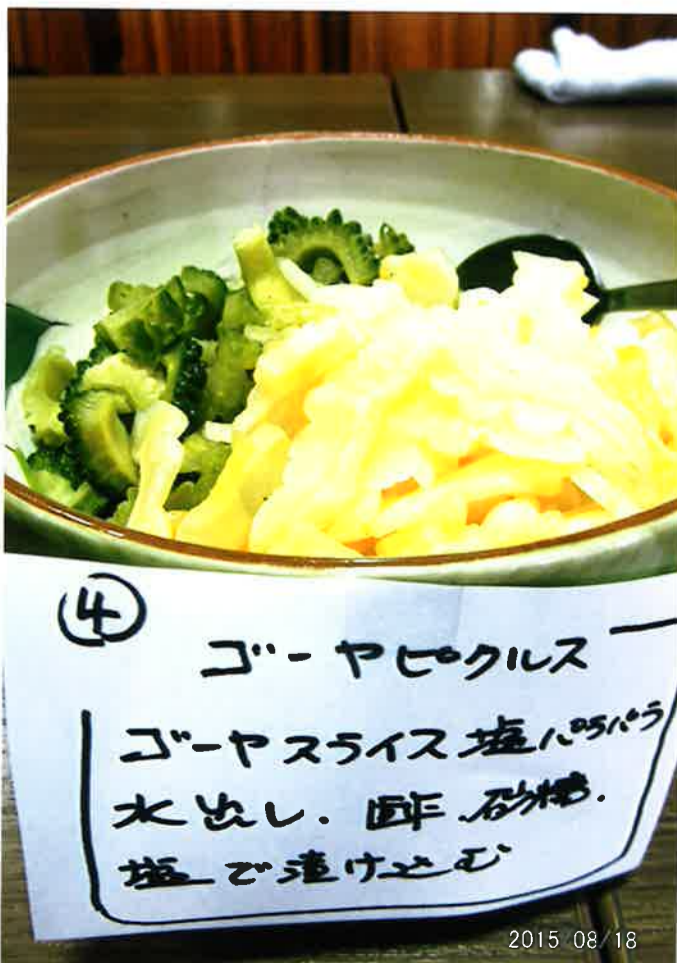 ④
ゴーヤピクルス
ゴーヤスライス塩パラパラ
水出し.酢.砂糖.
塩で漬け込む
2015 08/18